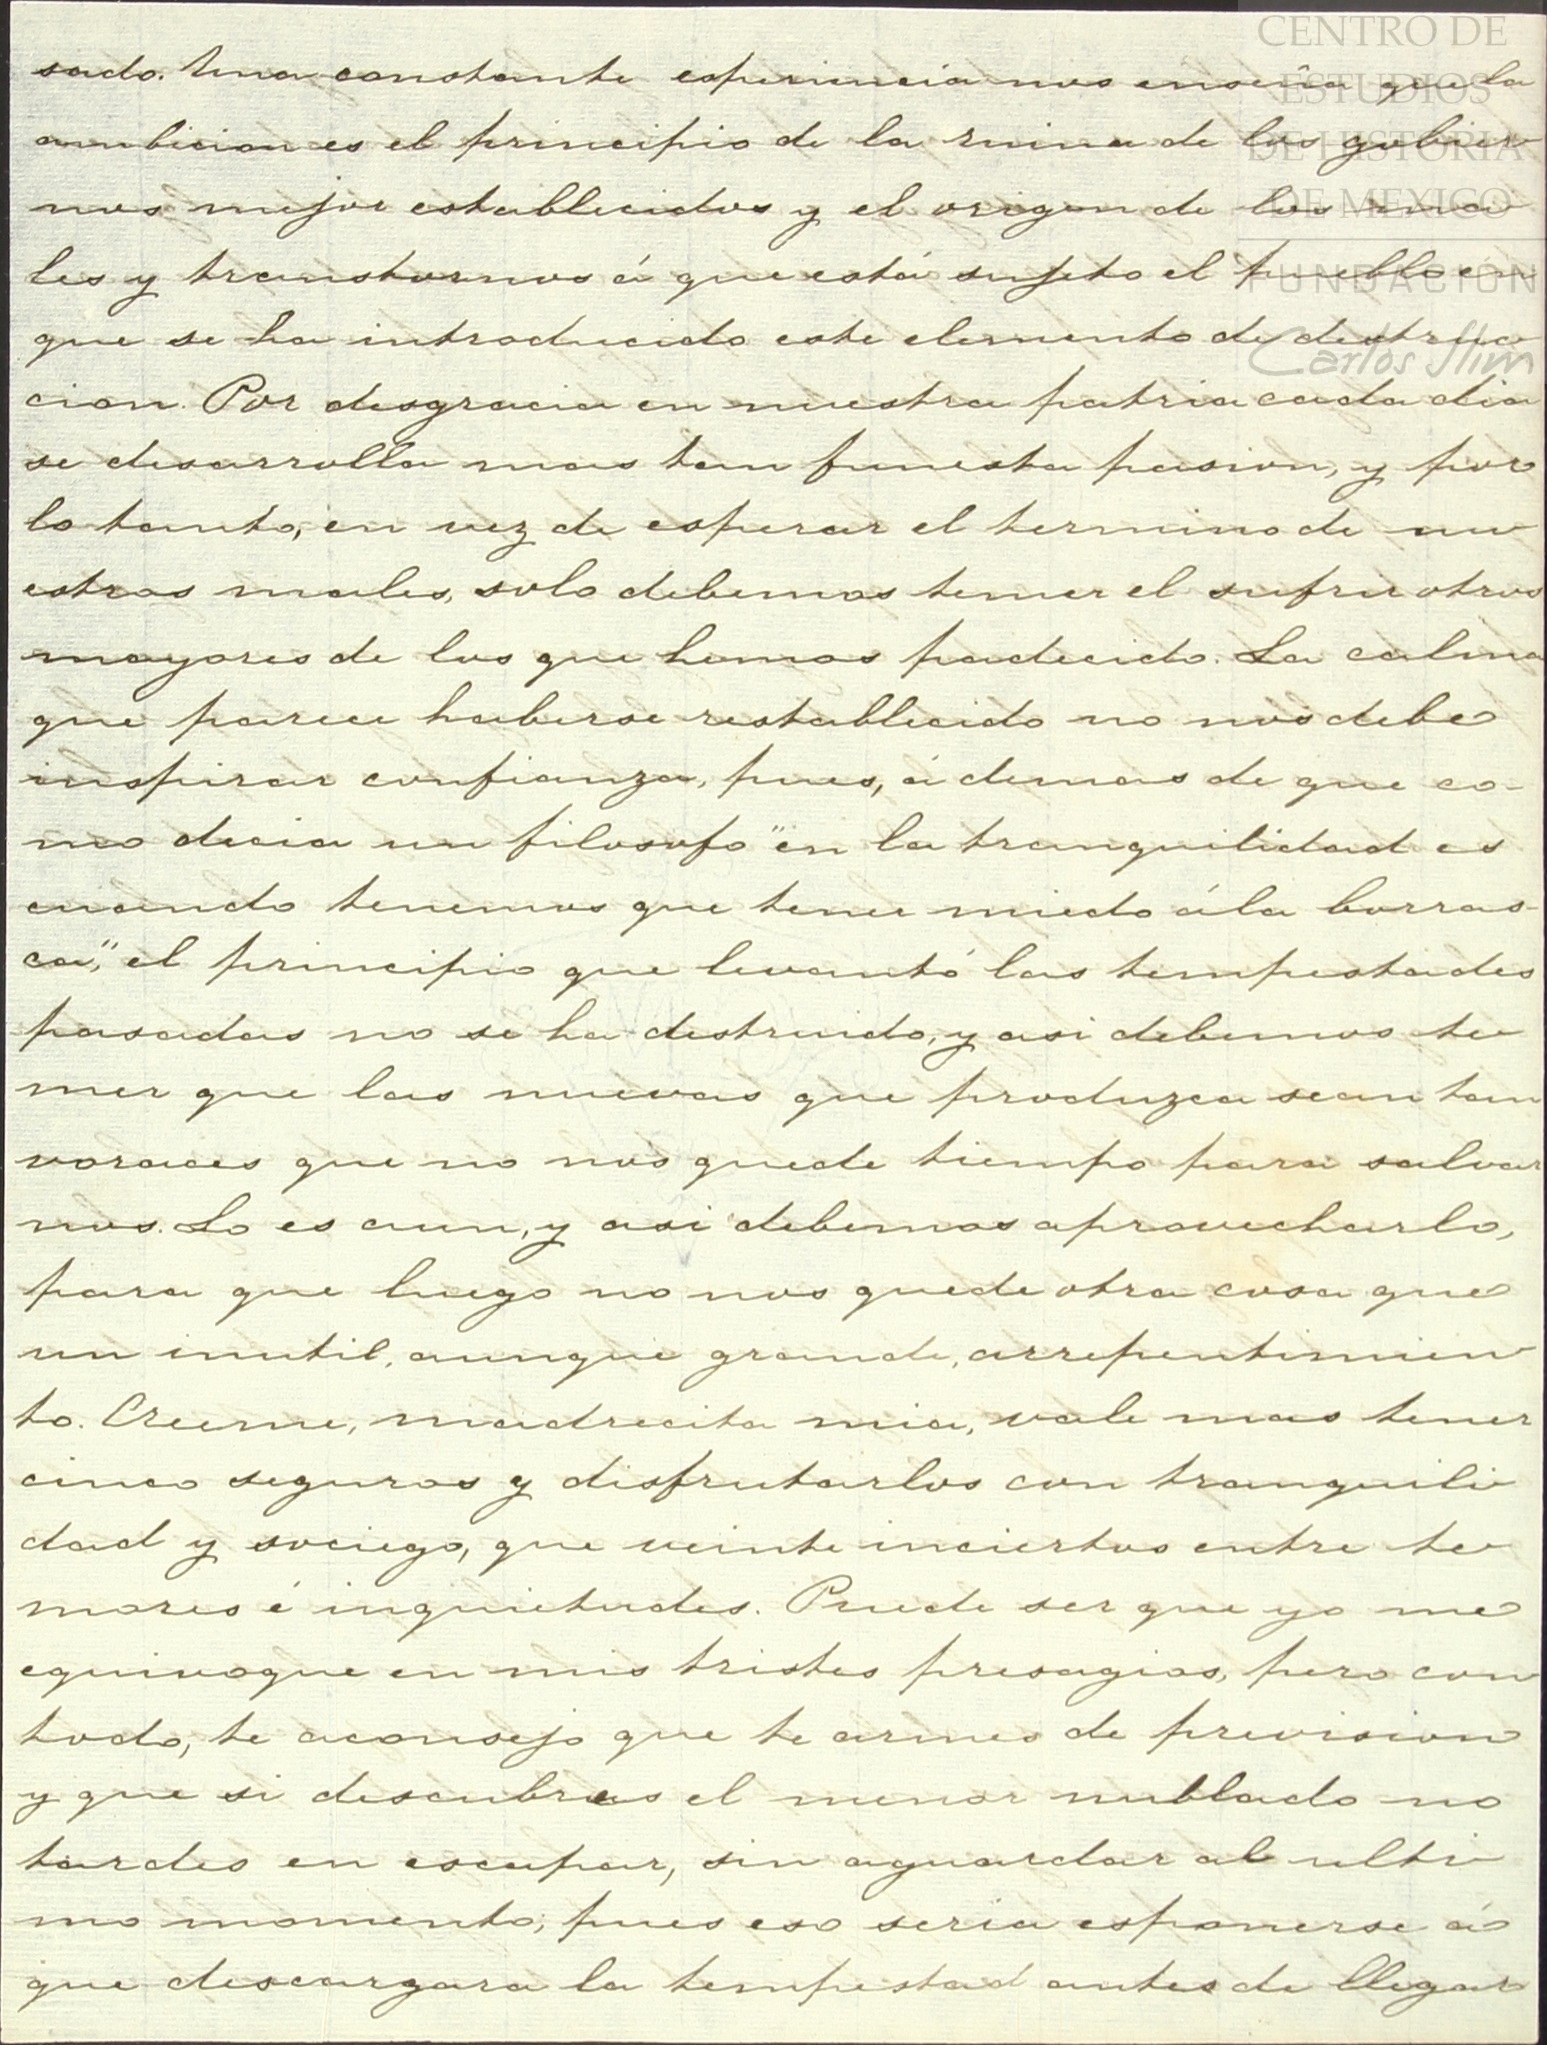 CENTRO DE
ESTUDIOS
DE HISTORIA
DE MEXICO
FUNDACION
Carlos Slim
sado. Una constante esperiencia nos enseña que la
ambicion es el principio de la ruina de los gobier
nos mejor establecidos y el origen de los ma
les y transtornos á que está sujeto el pueblo en
que se ha introducido este elemento de destruc
cion. Por desgracia en nuestra patria cada dia
se desarrolla mas tan funesta pasion, y por
lo tanto, en vez de esperar el termino de nu
estros males, solo debemos temer el sufrir otros
mayores de los que hemos padecido. La calma
que parece haberse restablecido no nos debe
inspirar confianza, pues, á demas de que co-
mo decia un filosofo "en la tranquilidad es
cuando tenemos que tener miedo á la borras-
ca," el principio que levantó las tempestades
pasadas no se ha destruido, y asi debemos te
mer que las nuevas que produzca sean tan
voraces que no nos quede tiempo para salvar
nos. Lo es aun, y asi debemos aprovecharlo,
para que luego no nos quede otra cosa que
un inutil, aunque grande, arrepentimien
to. Creeme, madrecita mia, vale mas tener
cinco seguros y disfrutarlos con tranquili
dad y sociego, que veinte inciertos entre te
mores é inquietudes. Puede ser que yo me
equivoque en mis tristes presagios, pero con
todo, te aconsejo que te armes de prevision
y que si descubres el menor nublado no
tardes en escapar, sin aguardar al ulti
mo momento; pues eso seria esponerse á
que descargara la tempestad antes de llegar